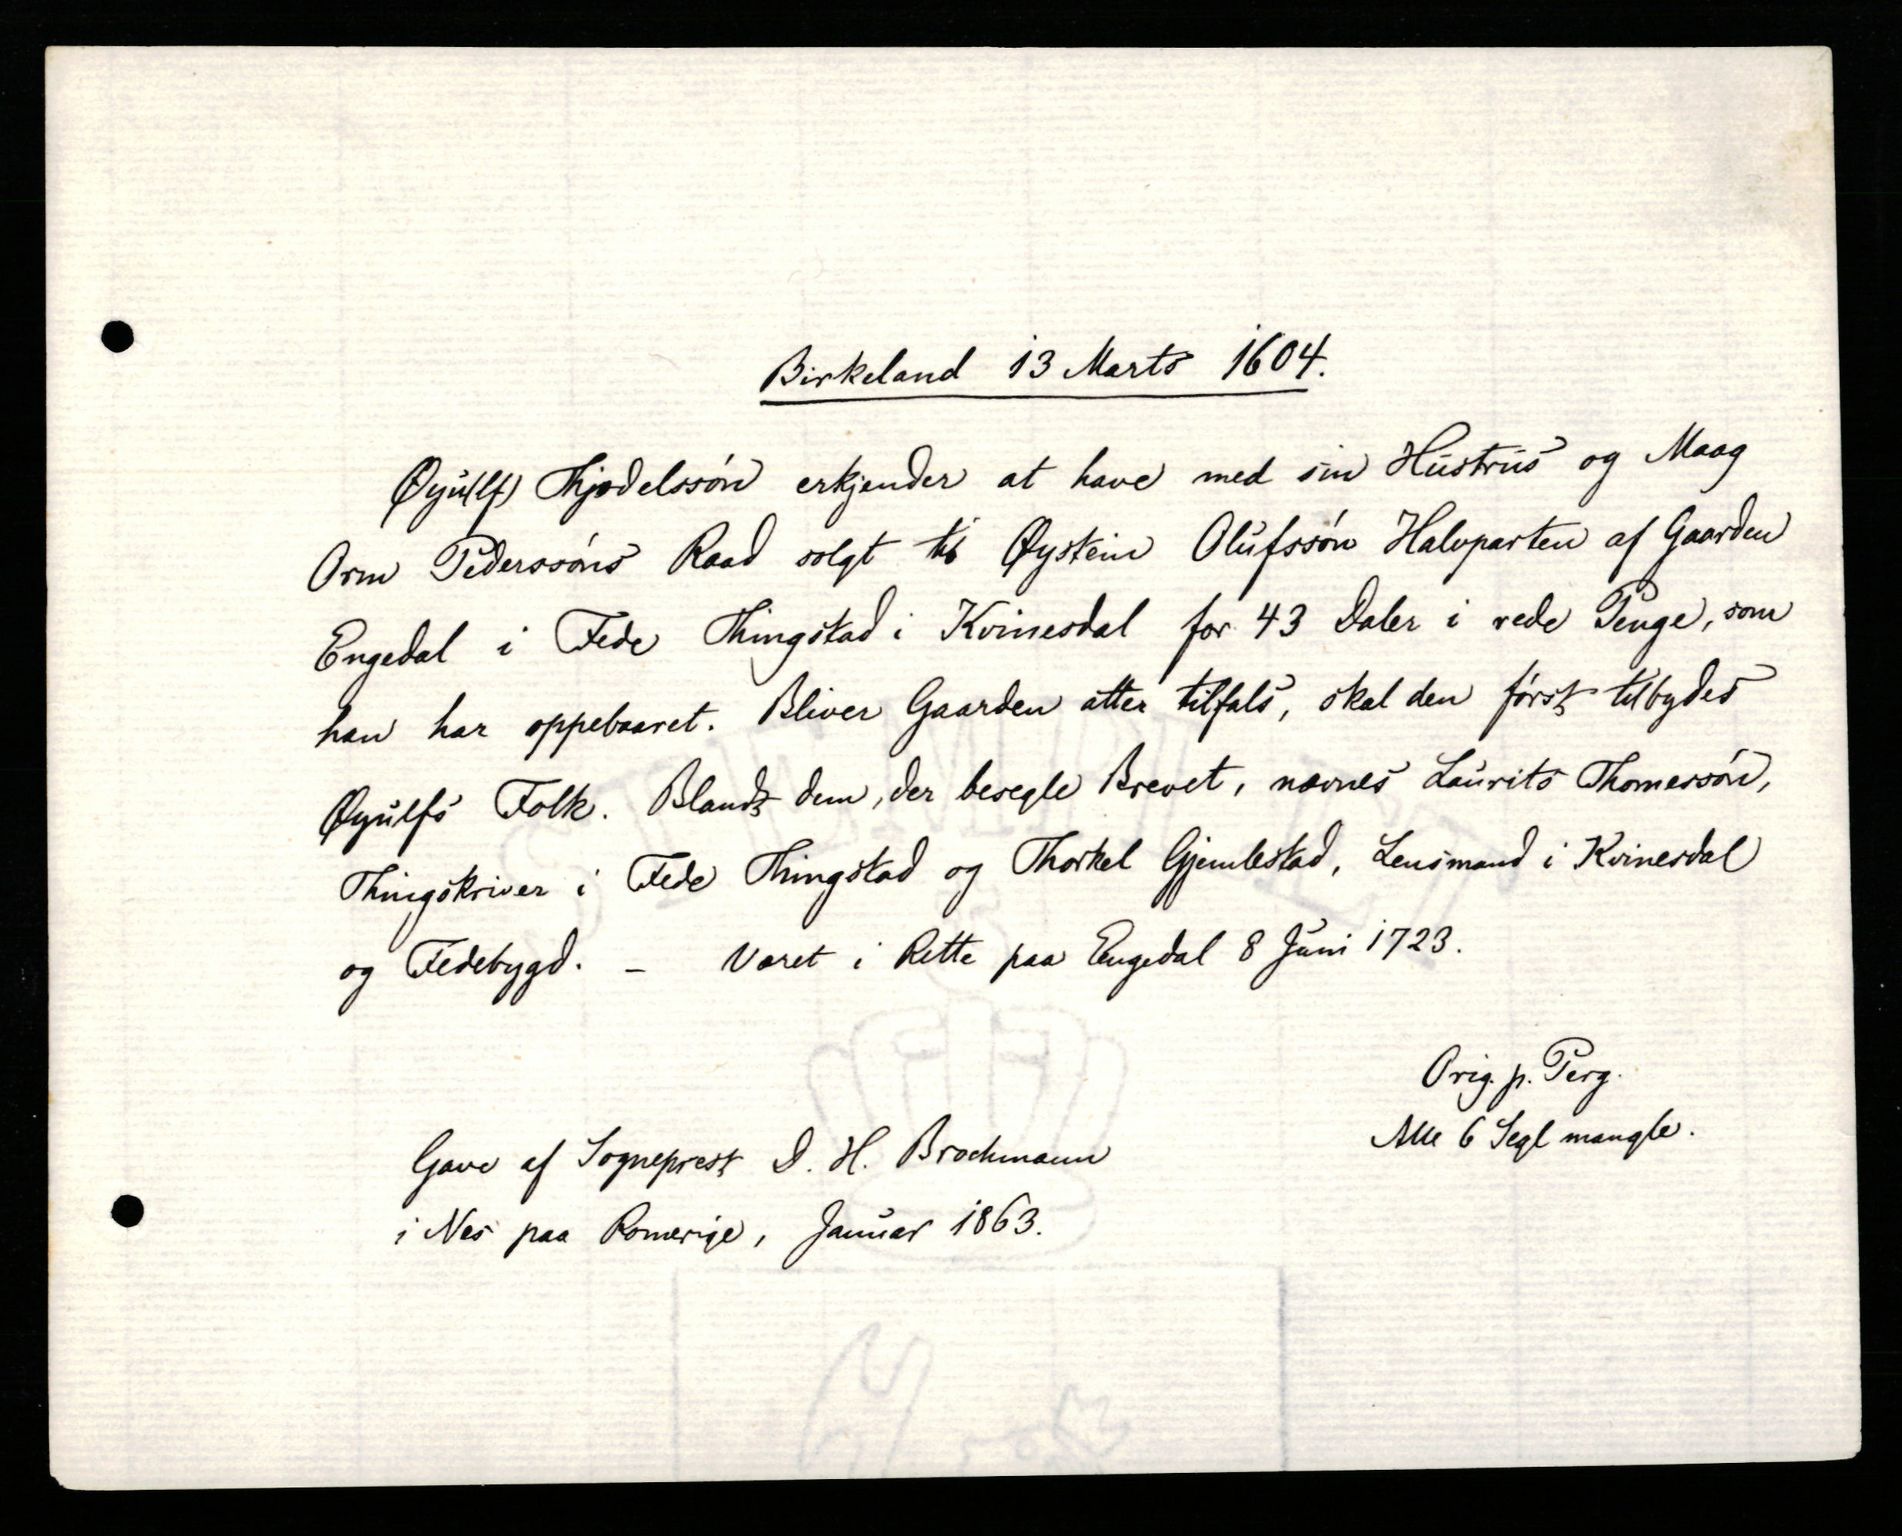 Birkeland 13 Marts 1604.
Øyu(lf) Thjodelssøn erkjender at have med sin Hustrus og Maag
Orm Pederssøns Raad solgt til Øystein Olufssøn Halvparten af Gaarden
Engedal i Fede Thingstad i Kvinesdal for 43 Daler i rede Penge, som
han har oppebaaret. Bliver Gaarden atter tilfals, skal den først tilbydes
Øyulfs Folk. Blandt dem, der besegle Brevet, nævnes Laurits Thomessøn,
Thingskriver i Fede Thingstad og Thorkel Gjemlestad, Lensmand i Kvinesdal
og Fedebygd. – Været i Rette paa Engedal 8 Juni 1723.
Orig. p. Perg.
Alle 6 Segl mangle.
Gave af Sogneprest D. H. Brochmann
i Nes paa Romerige, Januar 1863.